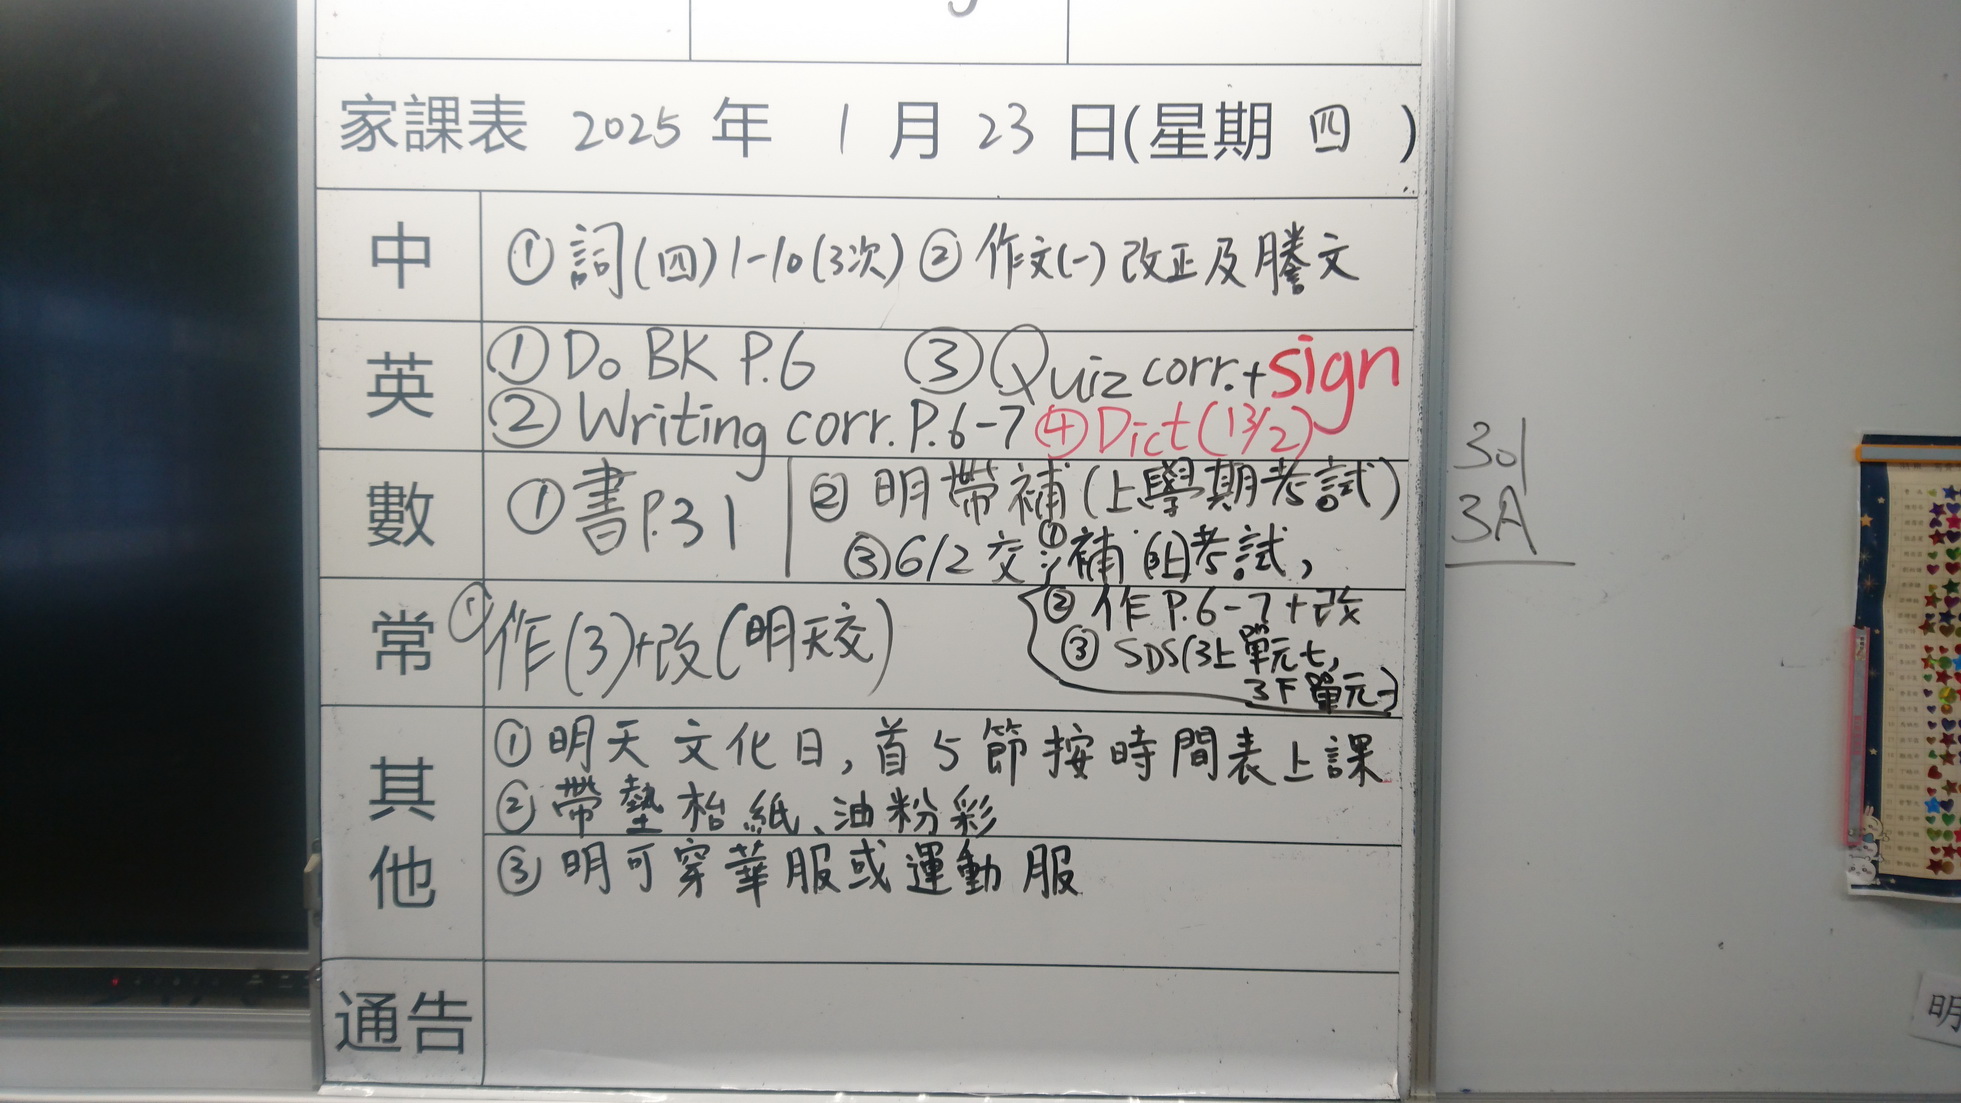 家課表 2025 年 1 月 23 日(星期 四 )
中
① 詞(四)1-10(3次) ② 作文(一) 改正及謄文
英
① Do BK P.6 ③ Quiz corr.+sign
② Writing corr. P.6-7 ④ Dict (13/2)
數
① 書P.31 ② 明帶補(上學期考試)
③ 6/2 交: ① 補 考試,
② 作 P.6-7+改
③ SDS(3上單元七,
3下單元一)
常
① 作(3)+改(明天交)
其他
① 明天文化日,首5節按時間表上課
② 帶墊枱紙、油粉彩
③ 明可穿華服或運動服
通告
301
3A
明